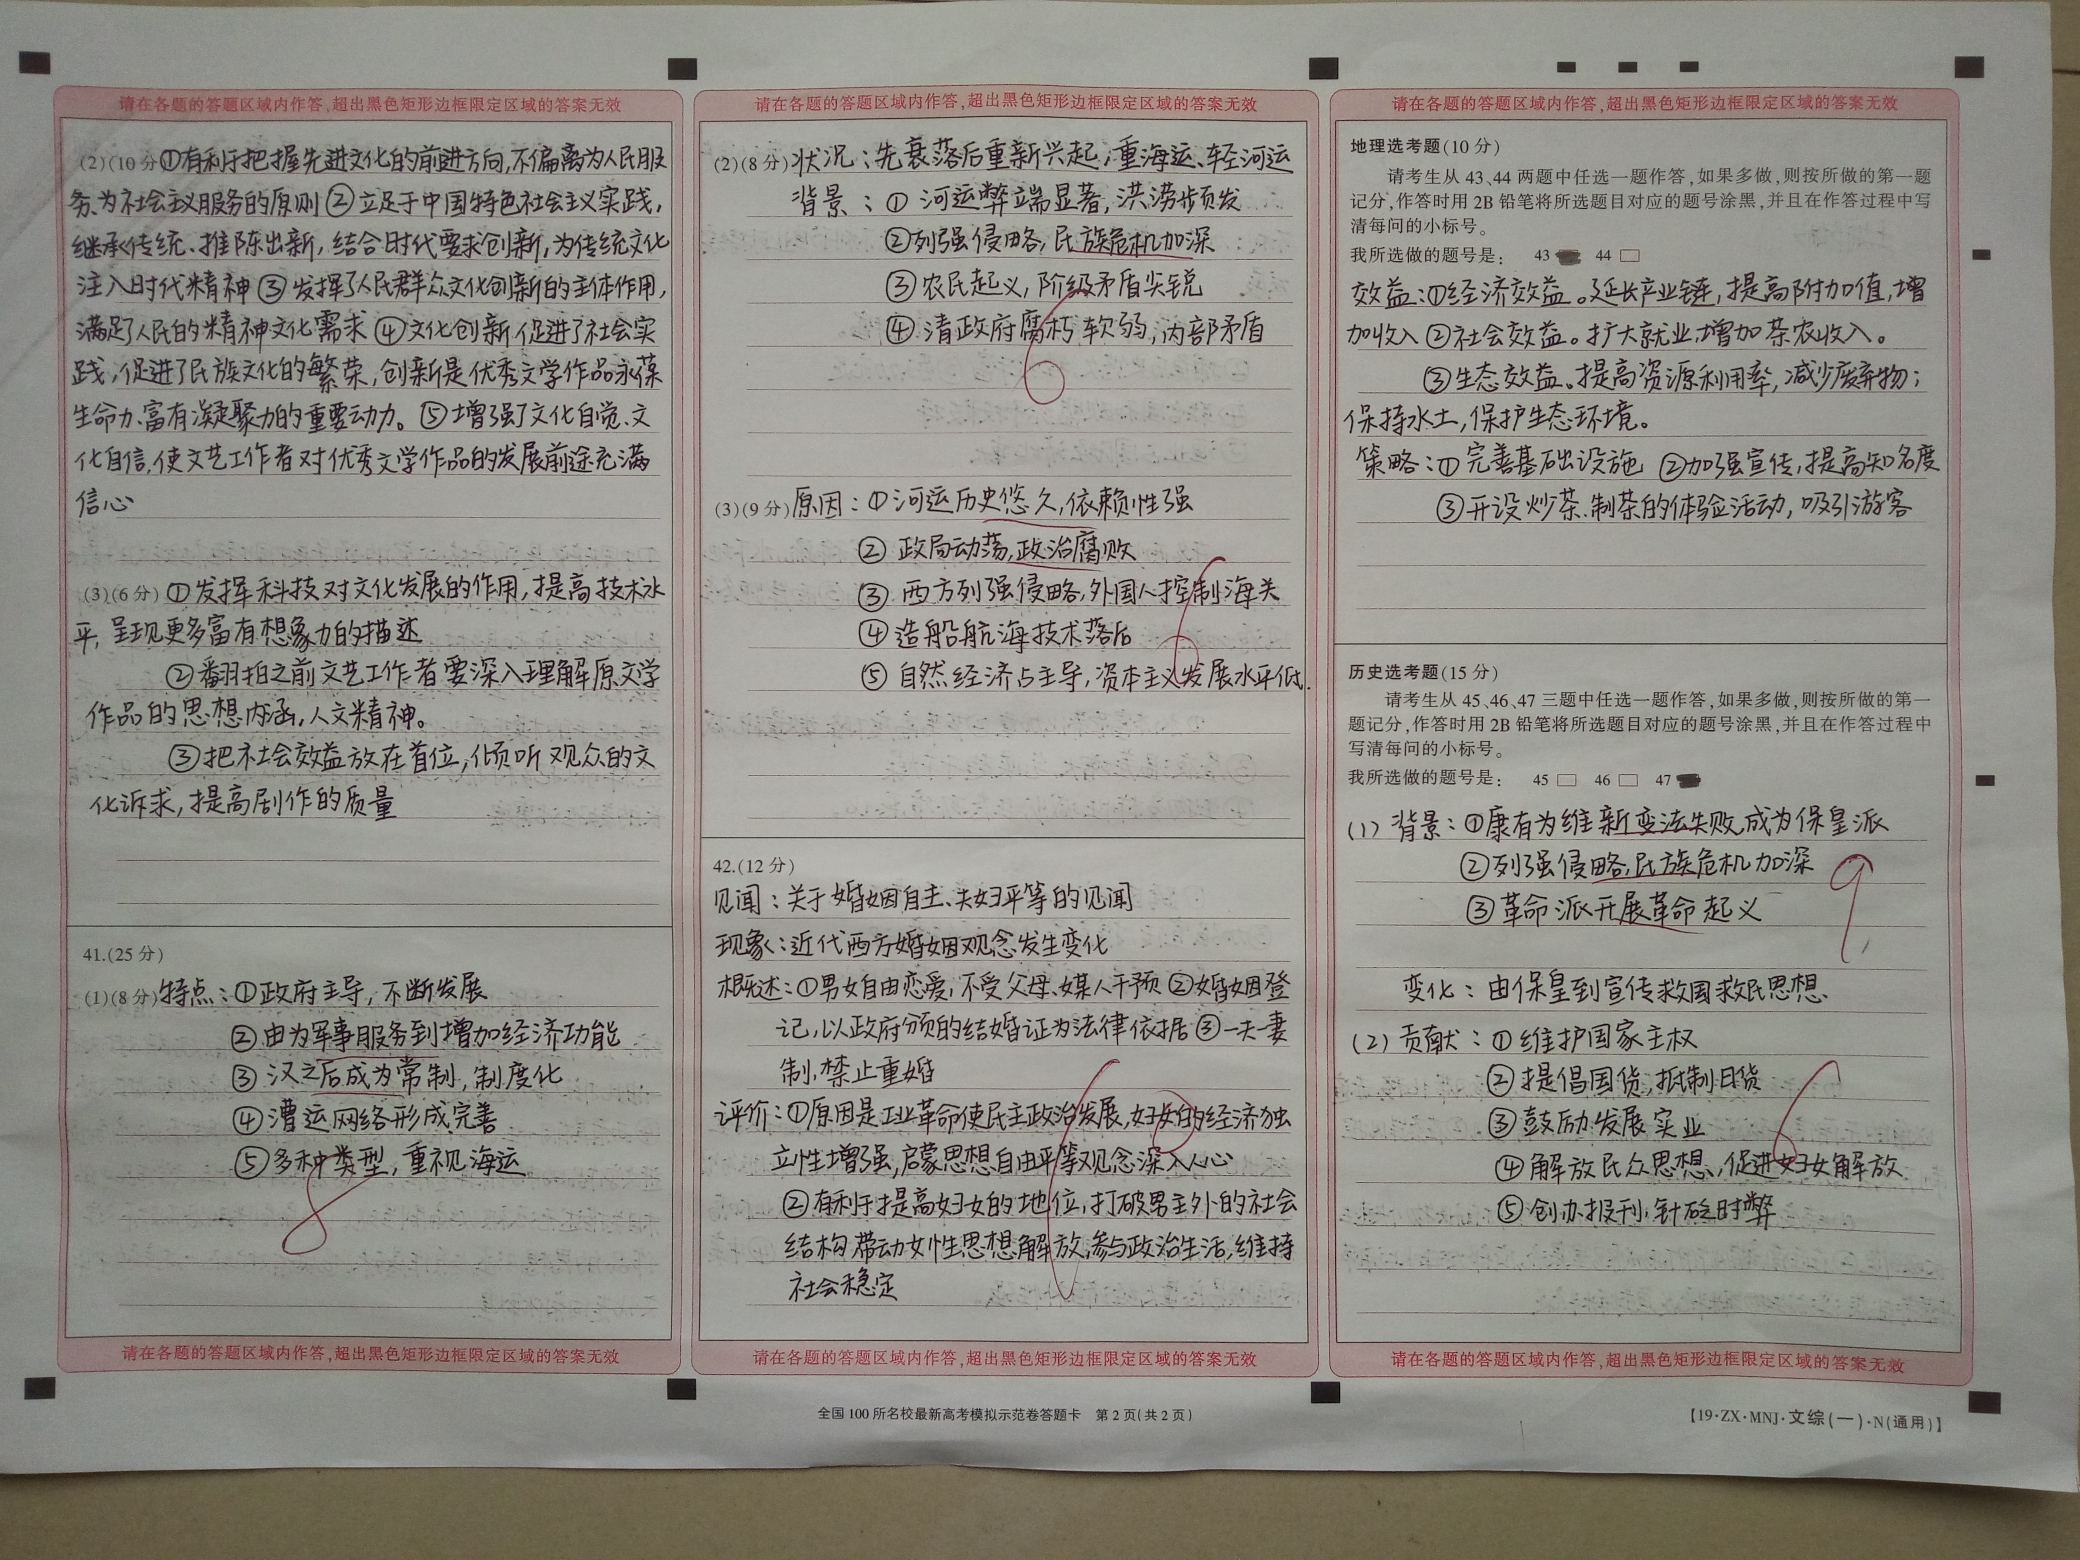 请在各题的答题区域内作答,超出黑色矩形边框限定区域的答案无效
(2)(10分)①有利于把握先进文化的前进方向,不偏离为人民服
务、为社会主义服务的原则②立足于中国特色社会主义实践,
继承传统、推陈出新,结合时代要求创新,为传统文化
注入时代精神③发挥了人民群众文化创新的主体作用,
满足了人民的精神文化需求④文化创新促进了社会实
践,促进了民族文化的繁荣,创新是优秀文学作品永葆
生命力、富有凝聚力的重要动力。⑤增强了文化自觉、文
化自信,使文艺工作者对优秀文学作品的发展前途充满
信心
(3)(6分)①发挥科技对文化发展的作用,提高技术水
平,呈现更多富有想象力的描述
②翻拍之前文艺工作者要深入理解原文学
作品的思想内涵,人文精神。
③把社会效益放在首位,倾听观众的文
化诉求,提高剧作的质量
41.(25分)
(1)(8分)特点:①政府主导,不断发展
②由为军事服务到增加经济功能
③汉之后成为常制,制度化
④漕运网络形成完善
⑤多种类型,重视海运
8
请在各题的答题区域内作答,超出黑色矩形边框限定区域的答案无效
请在各题的答题区域内作答,超出黑色矩形边框限定区域的答案无效
(2)(8分)状况:先衰落后重新兴起;重海运、轻河运
背景:①河运弊端显著,洪涝频发
②列强侵略,民族危机加深
③农民起义,阶级矛盾尖锐
④清政府腐朽软弱,内部矛盾
6
(3)(9分)原因:①河运历史悠久,依赖性强
②政局动荡,政治腐败
③西方列强侵略,外国人控制海关
④造船航海技术落后
⑤自然经济占主导,资本主义发展水平低.
6
42.(12分)
见闻:关于婚姻自主、夫妇平等的见闻
现象:近代西方婚姻观念发生变化
概述:①男女自由恋爱,不受父母、媒人干预②婚姻登
记,以政府颁的结婚证为法律依据③一夫一妻
制,禁止重婚
评价:①原因是工业革命使民主政治发展,妇女的经济独
立性增强,启蒙思想自由平等观念深入人心
②有利于提高妇女的地位,打破男主外的社会
结构带动女性思想解放,参与政治生活,维持
社会稳定
请在各题的答题区域内作答,超出黑色矩形边框限定区域的答案无效
请在各题的答题区域内作答,超出黑色矩形边框限定区域的答案无效
地理选考题(10分)
请考生从43、44两题中任选一题作答,如果多做,则按所做的第一题
记分,作答时用2B铅笔将所选题目对应的题号涂黑,并且在作答过程中写
清每问的小标号。
我所选做的题号是: 43 44
效益:①经济效益。延长产业链,提高附加值,增
加收入②社会效益。扩大就业,增加茶农收入。
③生态效益。提高资源利用率,减少废弃物;
保持水土,保护生态环境。
策略:①完善基础设施 ②加强宣传,提高知名度
③开设炒茶、制茶的体验活动,吸引游客
历史选考题(15分)
请考生从45、46、47三题中任选一题作答,如果多做,则按所做的第一
题记分,作答时用2B铅笔将所选题目对应的题号涂黑,并且在作答过程中
写清每问的小标号。
我所选做的题号是: 45 46 47
(1)背景:①康有为维新变法失败,成为保皇派
②列强侵略,民族危机加深
③革命派开展革命起义
9
变化:由保皇到宣传救国救民思想
(2)贡献:①维护国家主权
②提倡国货,抵制日货
③鼓励发展实业
④解放民众思想,促进妇女解放
⑤创办报刊,针砭时弊
6
请在各题的答题区域内作答,超出黑色矩形边框限定区域的答案无效
全国100所名校最新高考模拟示范卷答题卡 第2页(共2页)
【19·ZX·MNJ·文综(一)·N(通用)】